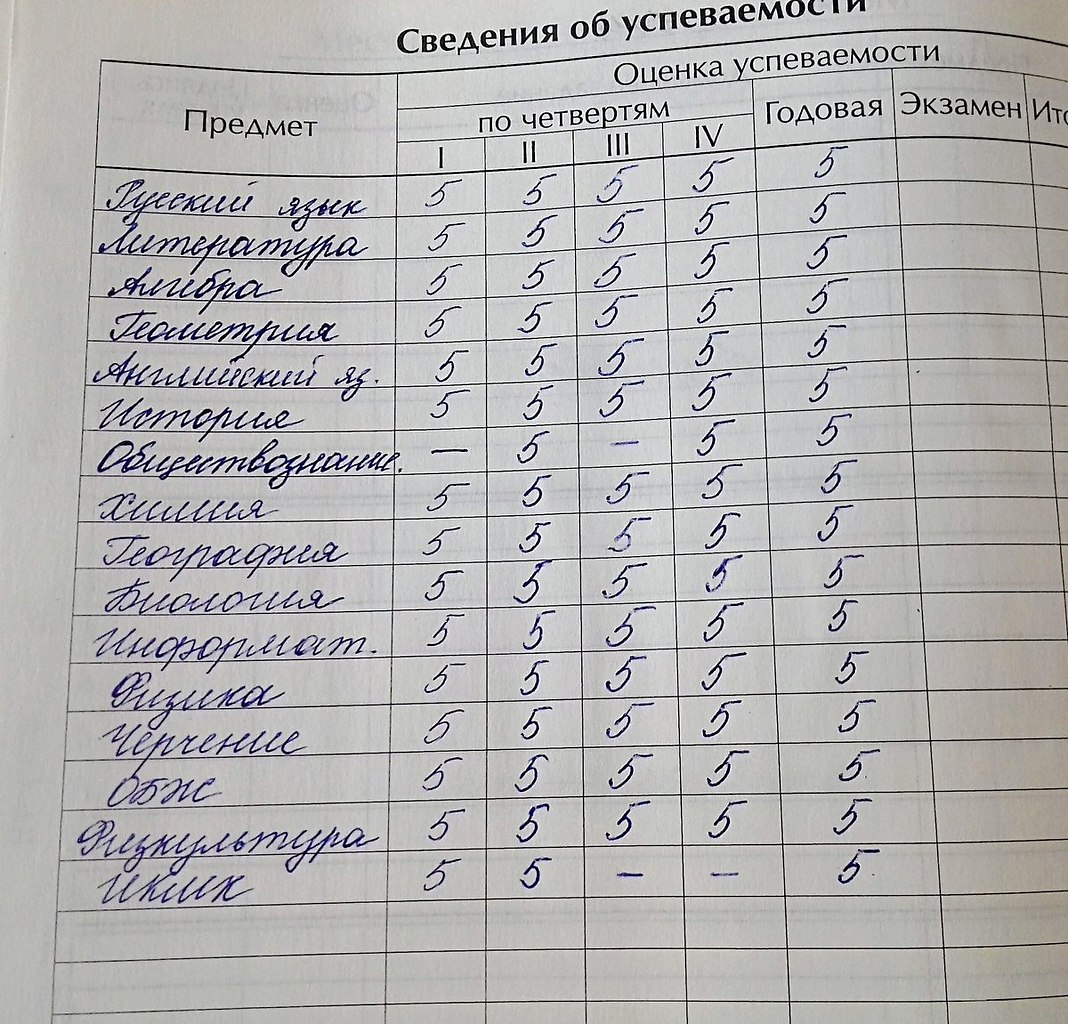 Сведения об успеваемости
Оценка успеваемости
Предмет по четвертям Годовая Экзамен Ито
I II III IV
Русский язык 5 5 5 5 5
Литература 5 5 5 5 5
Алгебра 5 5 5 5 5
Геометрия 5 5 5 5 5
Английский яз. 5 5 5 5 5
История 5 5 5 5 5
Обществознание. — 5 — 5 5
Химия 5 5 5 5 5
География 5 5 5 5 5
Биология 5 5 5 5 5
Информат. 5 5 5 5 5
Физика 5 5 5 5 5
Черчение 5 5 5 5 5
ОБЖ 5 5 5 5 5
Физкультура 5 5 5 5 5
ИКМК 5 5 — — 5